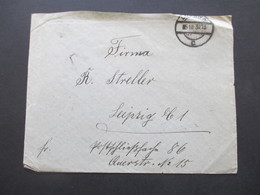 Firma
K. Streller
Leipzig C 1
fr. Postschließfach 86
Querstr. No 15